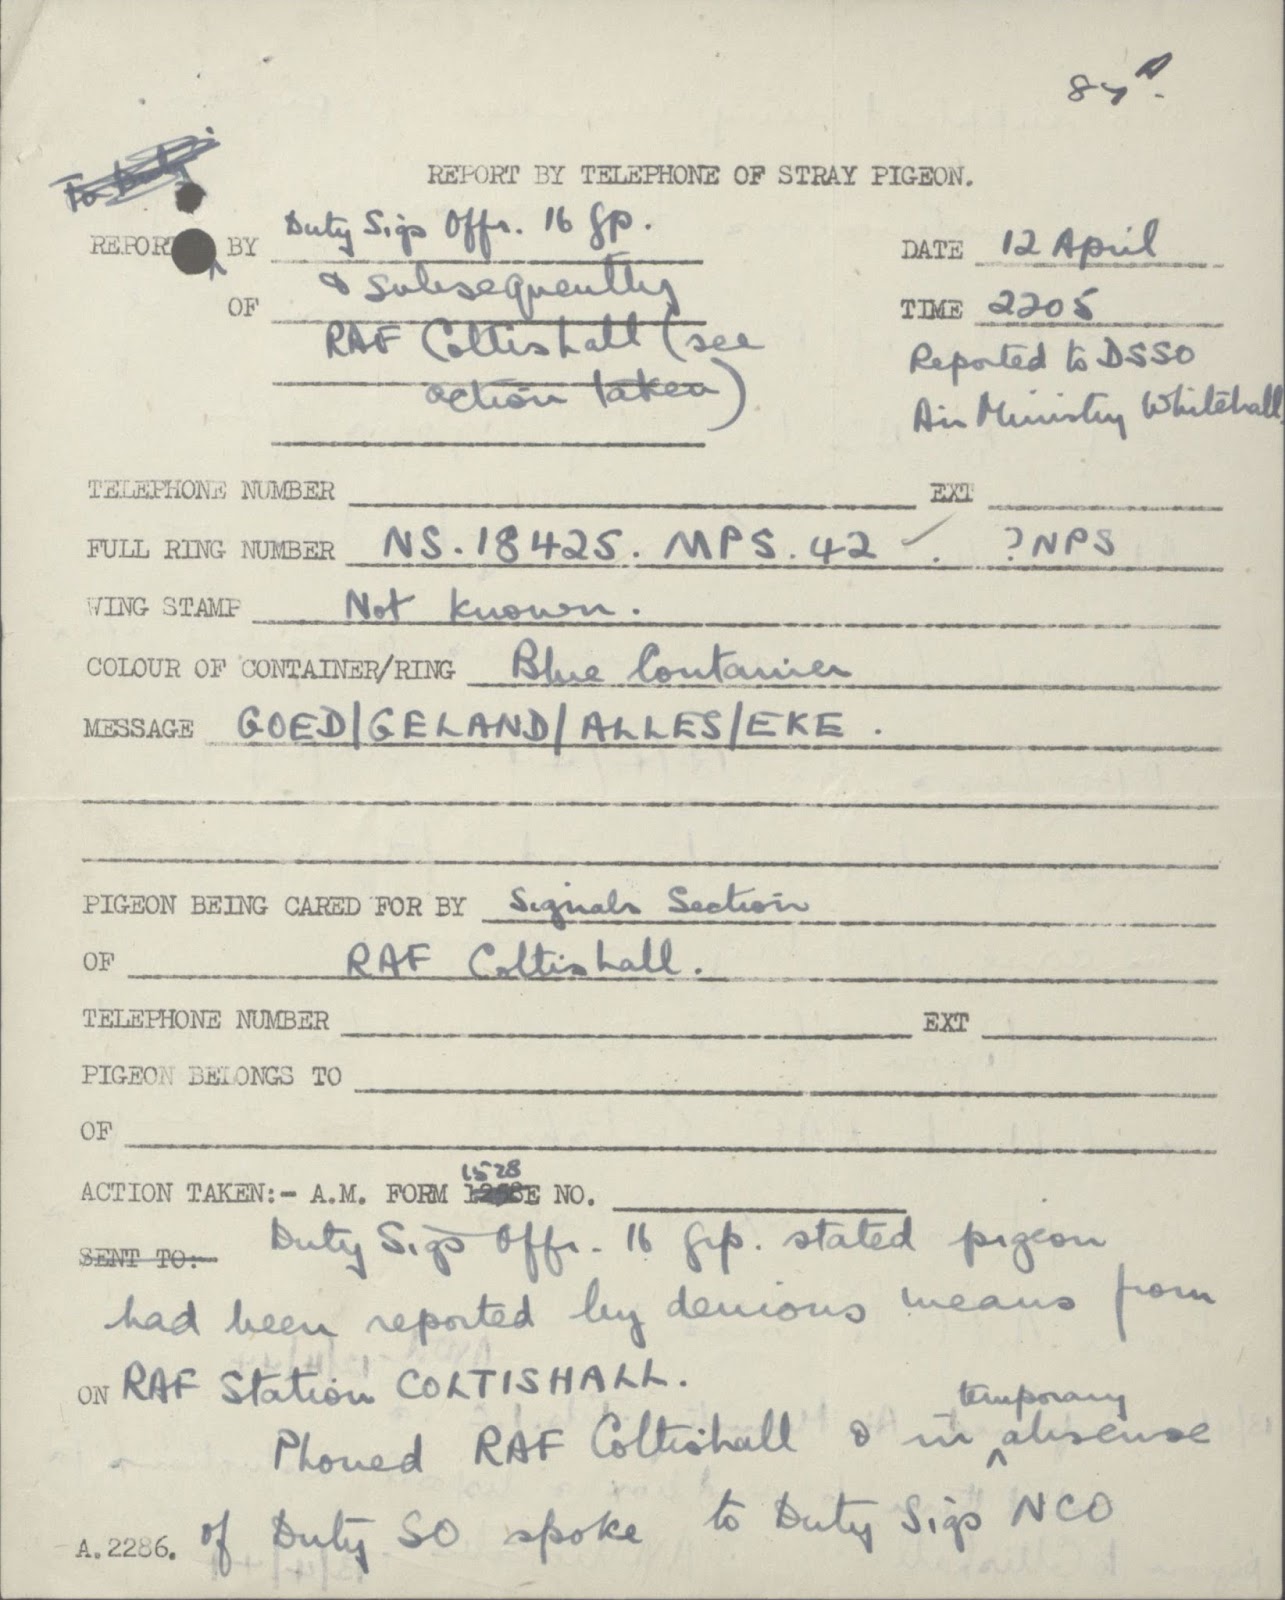 87A.
REPORT BY TELEPHONE OF STRAY PIGEON.
REPORT BY Duty Sigs Offr. 16 Gp.
DATE 12 April
OF & subsequently
TIME 2205
RAF Coltishall (see
action taken)
Reported to DSSO
Air Ministry Whitehall.
TELEPHONE NUMBER EXT
FULL RING NUMBER NS.18425. MPS.42 ✓. ?NPS
WING STAMP Not known.
COLOUR OF CONTAINER/RING Blue Container
MESSAGE GOED/GELAND/ALLES/EKE.
PIGEON BEING CARED FOR BY Signals Section
OF RAF Coltishall.
TELEPHONE NUMBER EXT
PIGEON BELONGS TO
OF
ACTION TAKEN:- A.M. FORM 1528 E NO.
SENT TO:- Duty Sigs Offr. 16 Grp. stated pigeon
had been reported by devious means from
ON RAF Station COLTISHALL.
Phoned RAF Coltishall & in temporary absense
A.2286. of Duty SO spoke to Duty Sigs NCO